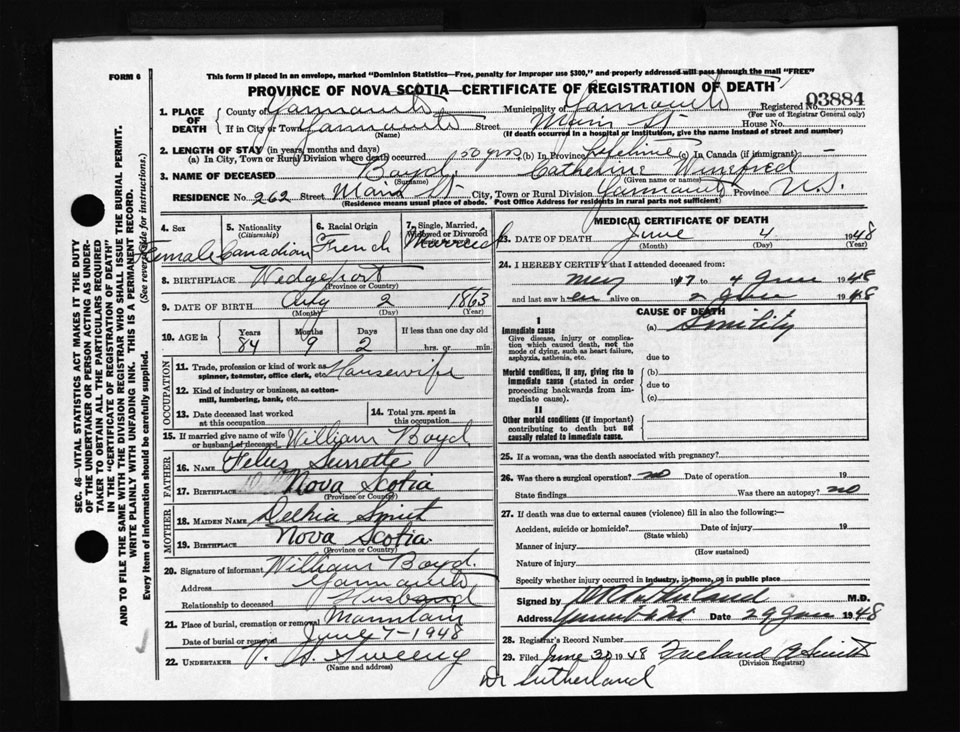 FORM 6
This form if placed in an envelope, marked "Dominion Statistics—Free, penalty for improper use $300," and properly addressed will pass through the mail "FREE"
PROVINCE OF NOVA SCOTIA—CERTIFICATE OF REGISTRATION OF DEATH
Registered No. 03884
(For use of Registrar General only)
1. PLACE OF DEATH
County of Yarmouth Municipality of Yarmouth
If in City or Town Yarmouth Street Main St House No.
(If death occurred in a hospital or institution, give the name instead of street and number)
2. LENGTH OF STAY (in years, months and days)
(a) In City, Town or Rural Division where death occurred 50 yrs (b) In Province Lifetime (c) In Canada (if immigrant) —
3. NAME OF DECEASED Boyd, Catherine Winifred
(Surname) (Given name or names)
RESIDENCE No. 262 Street Main St City, Town or Rural Division Yarmouth Province N.S.
(Residence means usual place of abode. Post Office Address for residents in rural parts not sufficient)
4. Sex Female
5. Nationality (Citizenship) Canadian
6. Racial Origin French
7. Single, Married, Widowed or Divorced Married
8. BIRTHPLACE Wedgeport
(Province or Country)
9. DATE OF BIRTH Aug 2 1863
(Month) (Day) (Year)
10. AGE in Years Months Days If less than one day old
84 9 2 hrs. or min.
OCCUPATION
11. Trade, profession or kind of work as spinner, teamster, office clerk, etc. Housewife
12. Kind of industry or business, as cotton-mill, lumbering, bank, etc.
13. Date deceased last worked at this occupation
14. Total yrs. spent in this occupation
15. If married give name of wife or husband of deceased William Boyd
FATHER
16. NAME Surrette
17. BIRTHPLACE Nova Scotia
(Province or Country)
MOTHER
18. MAIDEN NAME
19. BIRTHPLACE Nova Scotia
(Province or Country)
20. Signature of informant William Boyd.
Address Yarmouth
Relationship to deceased Husband
21. Place of burial, cremation or removal Mountain
Date of burial or removal June 7 - 1948
22. UNDERTAKER V. S. Sweeny
(Name and address)
MEDICAL CERTIFICATE OF DEATH
23. DATE OF DEATH June 4 1948
(Month) (Day) (Year)
24. I HEREBY CERTIFY that I attended deceased from:
May 1947 to 4 June 1948
and last saw her alive on 2 June 1948
CAUSE OF DEATH
I
Immediate cause (a) Senility
Give disease, injury or complication which caused death, not the mode of dying, such as heart failure, asphyxia, asthenia, etc.
due to
Morbid conditions, if any, giving rise to immediate cause (stated in order proceeding backwards from immediate cause).
(b)
due to
(c)
II
Other morbid conditions (if important) contributing to death but not causally related to immediate cause.
25. If a woman, was the death associated with pregnancy?
26. Was there a surgical operation? no Date of operation 19
State findings Was there an autopsy? no
27. If death was due to external causes (violence) fill in also the following:—
Accident, suicide or homicide? Date of injury 19
(State which)
Manner of injury
(How sustained)
Nature of injury
Specify whether injury occurred in industry, in home, or in public place
Signed by Sutherland M.D.
Address Date 29 June 1948
28. Registrar's Record Number
29. Filed June 30 1948 Smith
(Division Registrar)
Dr Sutherland
SEC. 46—VITAL STATISTICS ACT MAKES IT THE DUTY
OF THE UNDERTAKER OR PERSON ACTING AS UNDERTAKER TO OBTAIN ALL THE PARTICULARS REQUIRED
IN THE "CERTIFICATE OF REGISTRATION OF DEATH"
AND TO FILE THE SAME WITH THE DIVISION REGISTRAR WHO SHALL ISSUE THE BURIAL PERMIT.
WRITE PLAINLY WITH UNFADING INK. THIS IS A PERMANENT RECORD.
Every item of information should be carefully supplied. (See reverse side for instructions.)